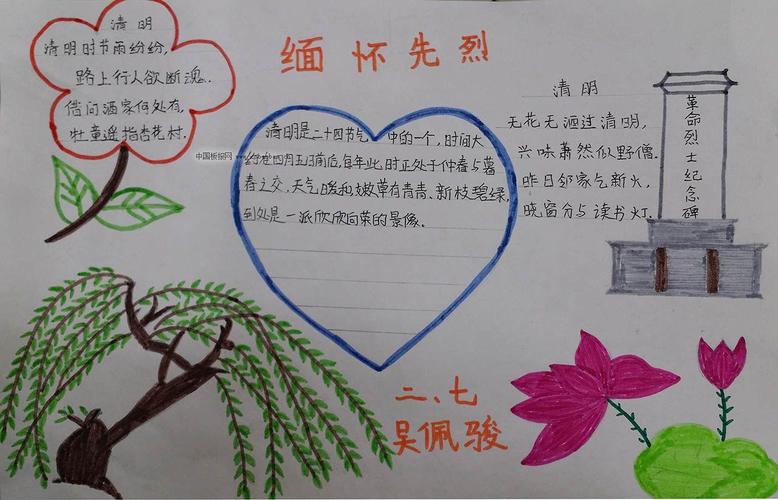 缅怀先烈
清明
清明时节雨纷纷,
路上行人欲断魂.
借问酒家何处有,
牡童遥指杏花村.
中国板报网
清明是二十四节气中的一个,时间大
约在四月五日前后,每年此时正处于仲春与暮
春之交,天气暖和,嫩草有青青、新枝碧绿,
到处是一派欣欣向荣的景像.
清明
无花无酒过清明,
兴味萧然似野僧.
昨日邻家乞新火,
晓窗分与读书灯.
革命烈士纪念碑
二、七
吴佩骏